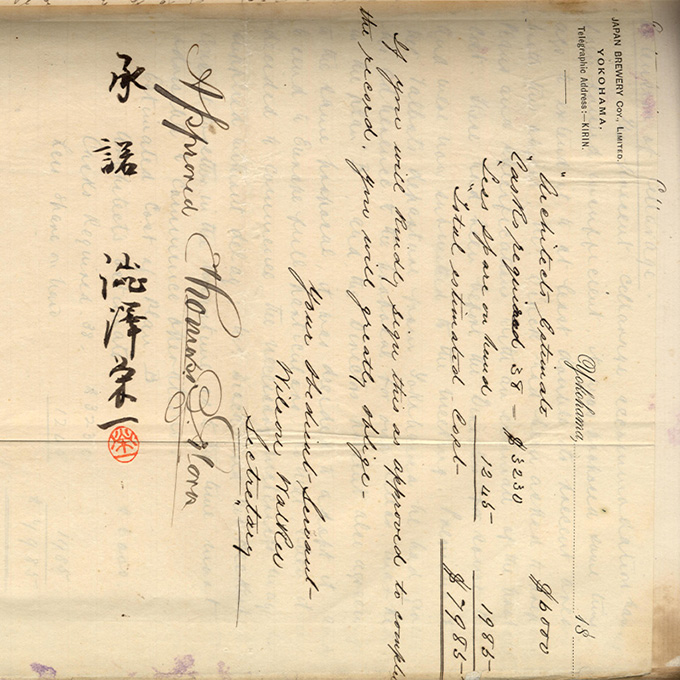 JAPAN BREWERY COY., LIMITED.
YOKOHAMA.
Telegraphic Address:—KIRIN.
Yokohama, 18
"Architects Estimate $6000
"Casks required 38 – $3230
"Less spare on hand 1245 1985
"Total estimated Cost $7985
If you will kindly sign this as approved to complete
the record, you will greatly oblige.
Your obedient Servant
Wilson Walker
Secretary
Approved Thomas B. Glover
承諾 澁澤栄一